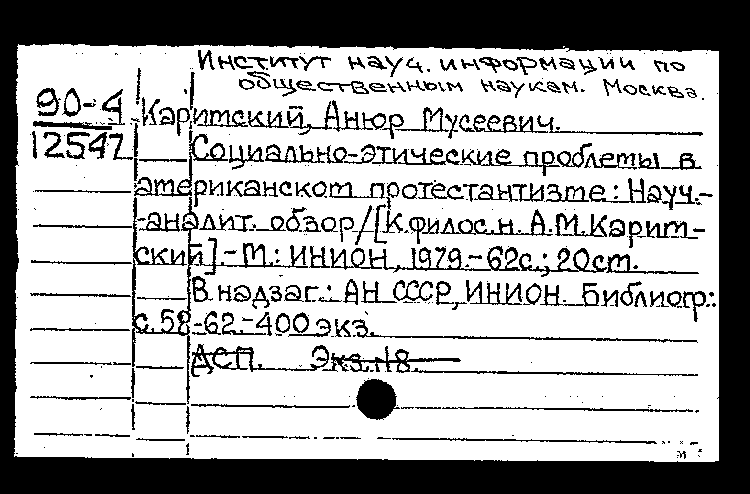 Институт науч. информации по
общественным наукам. Москва.
90-4
12547
Каритский, Анюр Мусеевич.
Социально-этические проблемы в
американском протестантизме: Науч.-
-аналит. обзор/[К.филос.н. А.М.Карит-
ский].-М.: ИНИОН, 1979.-62с.; 20см.
В надзаг.: АН СССР, ИНИОН. Библиогр.:
с.58-62.-400 экз.
ДСП. Экз. №8.